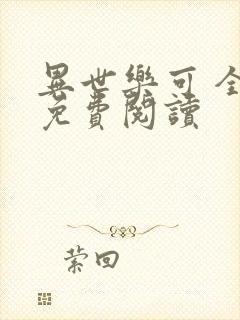 異世樂可全
免費閱讀
萦回